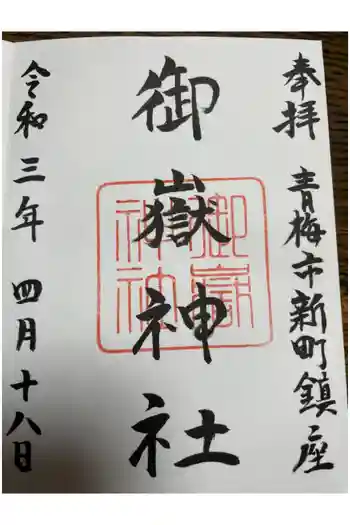 奉拝 青梅市新町鎮座
御嶽神社
御嶽神社
令和三年 四月十八日